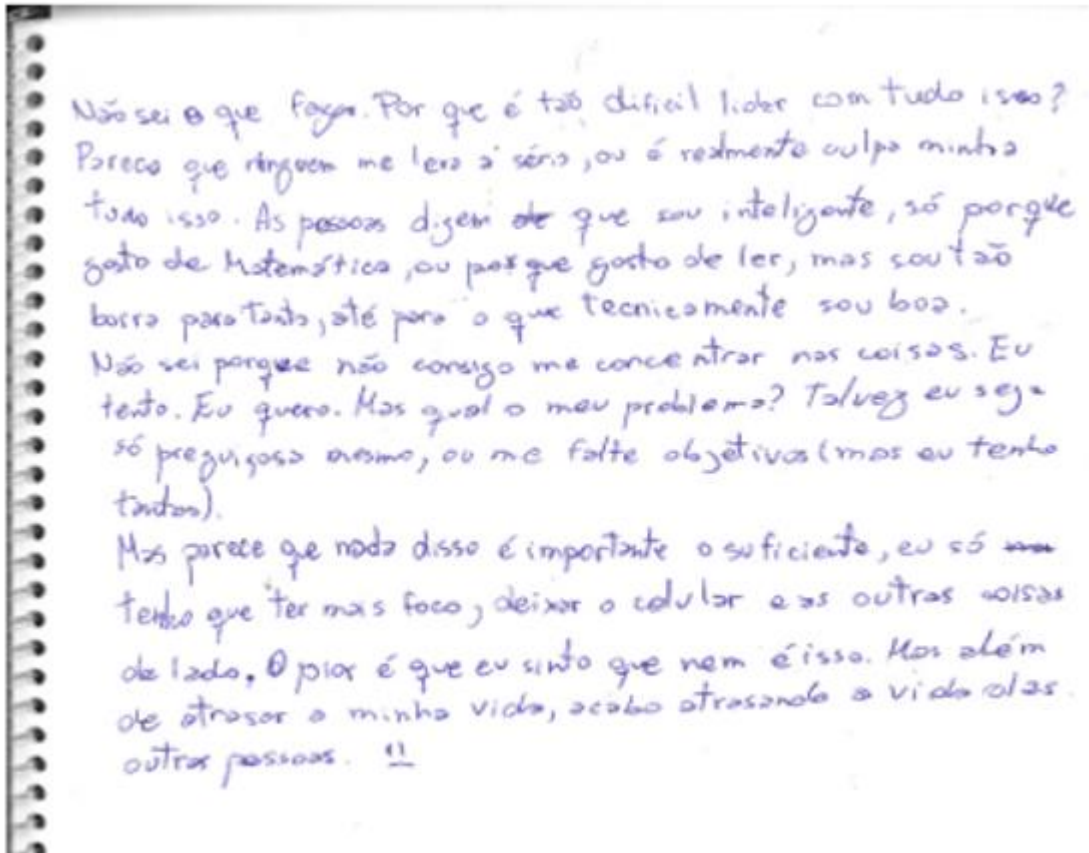 Não sei o que faço. Por que é tão dificil lidar com tudo isso?
Parece que ninguem me leva a sério, ou é realmente culpa minha
tudo isso. As pessoas dizem que sou inteligente, só porque
gosto de Matemática, ou porque gosto de ler, mas sou tão
burra para tanto, até para o que tecnicamente sou boa.
Não sei porque não consigo me concentrar nas coisas. Eu
tento. Eu quero. Mas qual o meu problema? Talvez eu seja
só preguiçosa mesmo, ou me falte objetivos (mas eu tenho
tantos).
Mas parece que nada disso é importante o suficiente, eu só
tenho que ter mais foco, deixar o celular e as outras coisas
de lado. O pior é que eu sinto que nem é isso. Mas além
de atrasar a minha vida, acabo atrasando a vida das
outras pessoas.